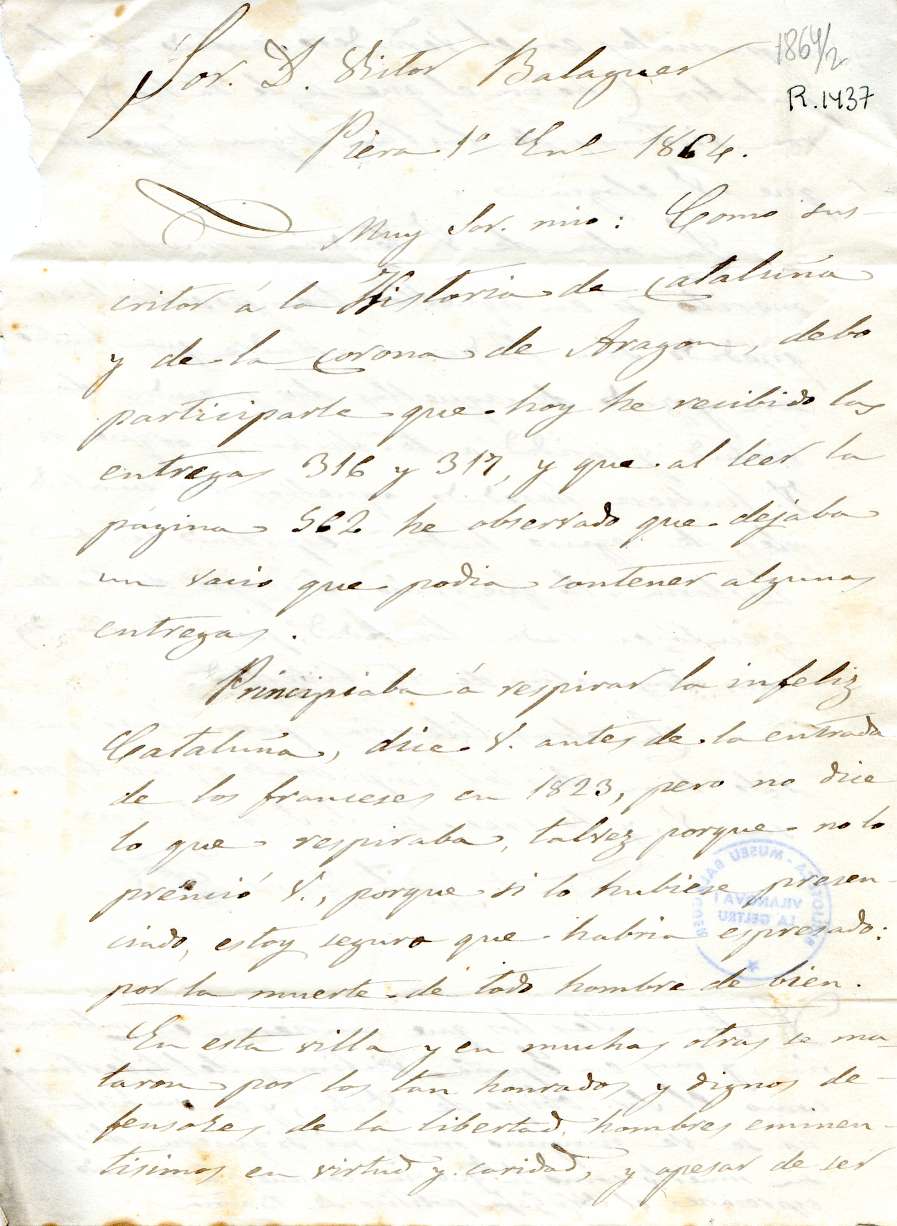 1864/2
R.1437
Sor. D. Victor Balaguer
Piera 1º Enº 1864.
Muy Sor. mio: Como sus-
critor á la Historia de Cataluña
y de la corona de Aragon, debo
participarle que hoy he recibido las
entregas 316 y 317, y que al leer la
página 562 he observado que dejaba
un vacio que podia contener algunas
entregas.
Principiaba á respirar la infeliz
Cataluña, dice V. antes de la entrada
de los franceses en 1823, pero no dice
lo que respiraba, talvez porque no lo
prenció V., porque si lo hubiese presen-
ciado, estoy seguro que habria espresado:
por la muerte de todo hombre de bien.
En esta villa y en muchas otras se ma-
taron por los tan honrados y dignos de-
fensores de la libertad, hombres eminen-
tisimos en virtud y caridad, y apesar de ser
BIBLIOTECA - MUSEU BALAGUER
VILANOVA I
LA GELTRÚ